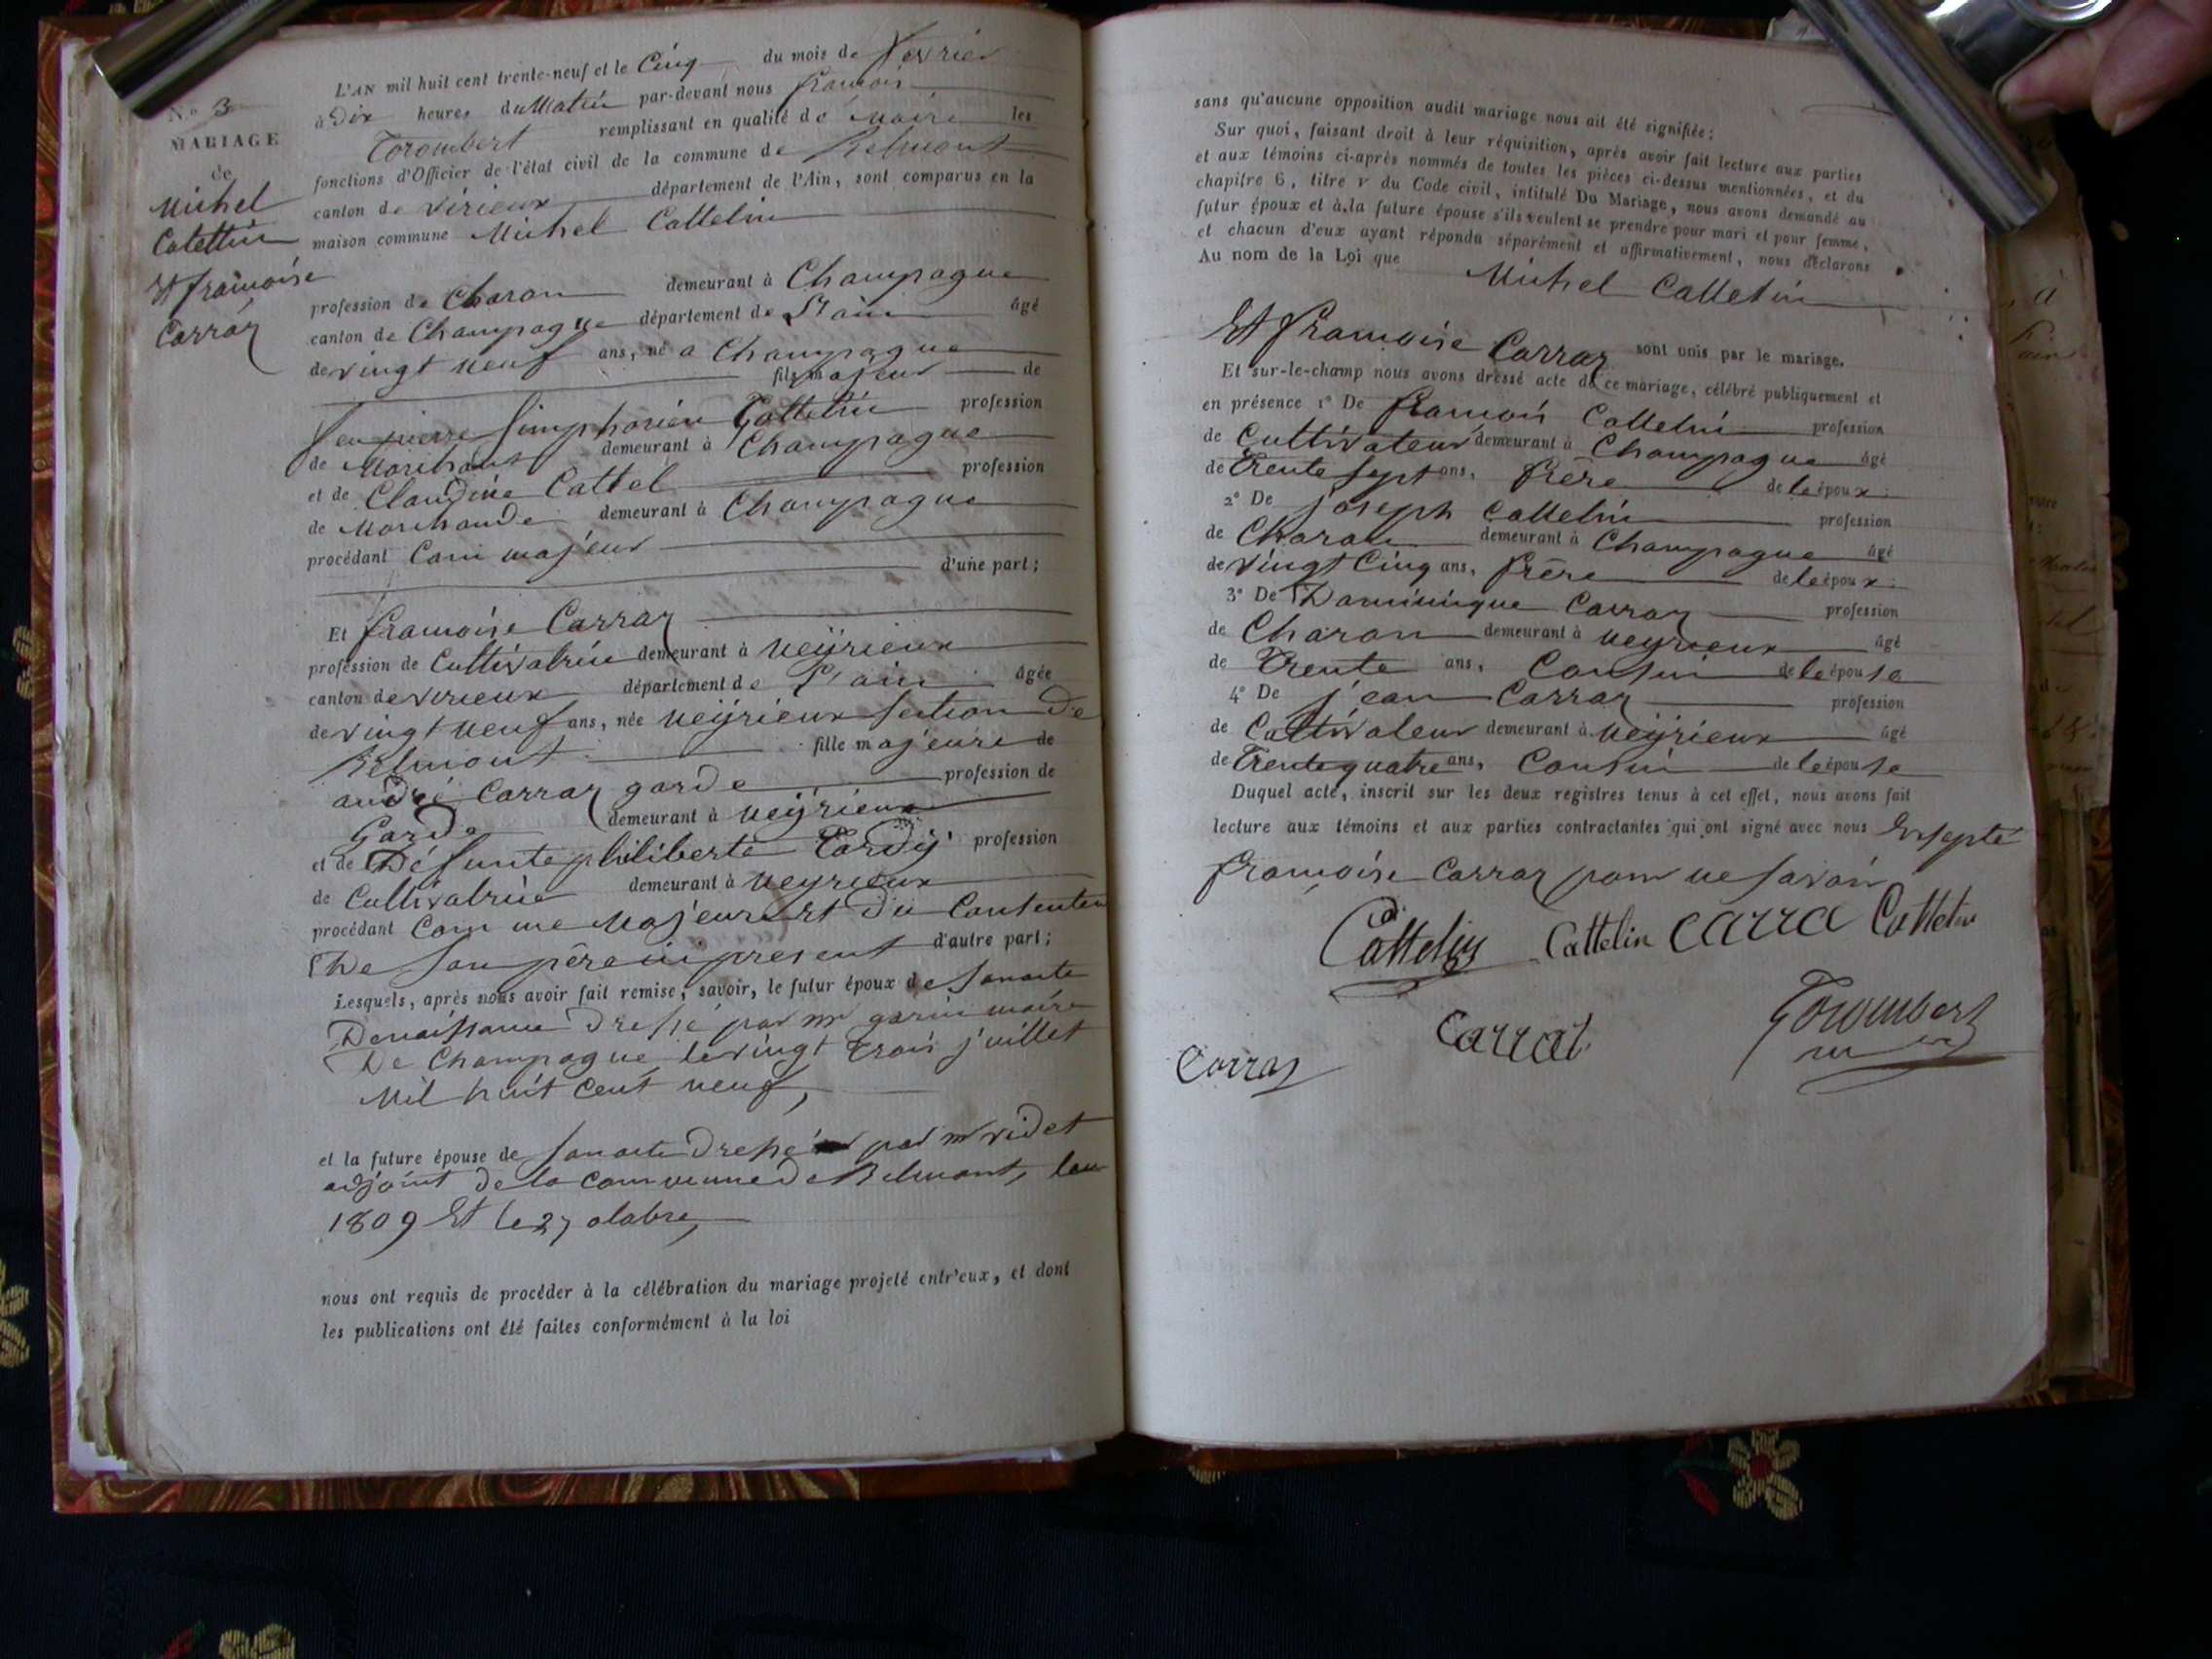 No 3
MARIAGE
de
Michel
Catettin
Et framoise
Carraz
L'AN mil huit cent trente-neuf et le Cinq du mois de fevrier
à Dix heures du Matin par-devant nous francois
Torombert remplissant en qualité de maire les
fonctions d'Officier de l'état civil de la commune de Belmont
canton de virieux département de l'Ain, sont comparus en la
maison commune Michel Cattelin
profession de Charon demeurant à Champagne
canton de Champagne département de L'ain âgé
de vingt neuf ans, né a Champagne
fils majeur de
feu pierre Simphorien Cattelin profession
de Marchand demeurant à Champagne
et de Claudine Cattel profession
de Marchande demeurant à Champagne
procédant Com majeur
d'une part;
Et francoise Carraz
profession de Cultivatrice demeurant à veÿrieux
canton de virieux département de L'ain âgée
de vingt neuf ans, née veÿrieux section de
Belmont fille majeure de
andré Carraz garde profession de
Garde demeurant à veÿrieux
et de Défunte philiberte Tardÿ profession
de Cultivatrice demeurant à veyrieux
procédant Comme Majeure Et du Contentem
De son père ici present d'autre part;
Lesquels, après nous avoir fait remise, savoir, le futur époux de son acte
De naissance dressé par mr garin maire
De Champagne le vingt trois juillet
Mil huit cent neuf,
et la future épouse de son acte dressé par mr videt
adjoint de la Commune de Belmont, lan
1809 Et le 27 octobre,
nous ont requis de procéder à la célébration du mariage projeté entr'eux, et dont
les publications ont été faites conformément à la loi
sans qu'aucune opposition audit mariage nous ait été signifiée;
Sur quoi, faisant droit à leur réquisition, après avoir fait lecture aux parties
et aux témoins ci-après nommés de toutes les pièces ci-dessus mentionnées, et du
chapitre 6, titre v du Code civil, intitulé Du Mariage, nous avons demandé au
futur époux et à la future épouse s'ils veulent se prendre pour mari et pour femme,
et chacun d'eux ayant répondu séparément et affirmativement, nous déclarons
Au nom de la Loi que Michel Cattelin
Et francoise Carraz sont unis par le mariage.
Et sur-le-champ nous avons dressé acte de ce mariage, célébré publiquement et
en présence 1° De francois Cattelin profession
de Cultivateur demeurant à Champagne âgé
de Trente sept ans, frère de le époux;
2° De joseph Cattelin profession
de Charon demeurant à Champagne âgé
de vingt Cinq ans, frère de le époux;
3° De Dominique Carraz profession
de Charon demeurant à veyrieux âgé
de Trente ans, Cousin de le épouse
4° De jean Carraz profession
de Cultivateur demeurant à veÿrieux âgé
de Trente quatre ans, Cousin de le épouse
Duquel acte, inscrit sur les deux registres tenus à cet effet, nous avons fait
lecture aux témoins et aux parties contractantes qui ont signé avec nous Exsepté
francoise Carraz pour ne savoir
Cattelin Cattelin CARRA Cattelin
Carraz Carrat Torombert